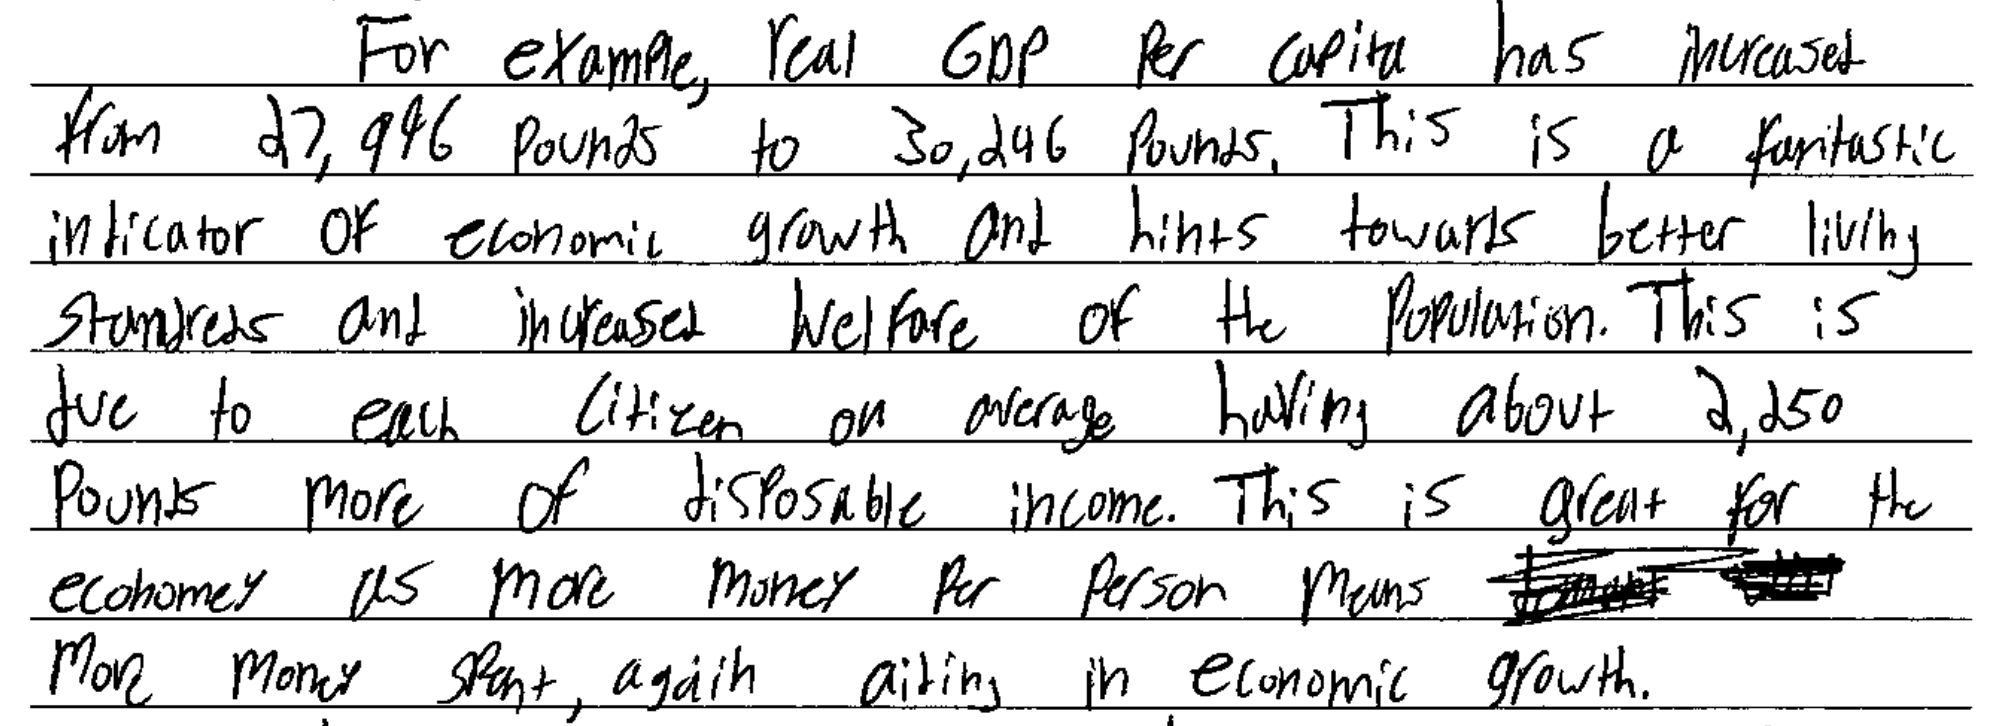 For example, real GDP Per capita has increased
from 27,996 Pounds to 30,246 Pounds. This is a fantastic
indicator of economic growth and hints towards better living
standreds and increased welfare of the Population. This is
due to each Citizen on average having about 2,250
Pounds more of disposable income. This is great for the
economey as more money Per Person means
more money spent, again aiding in economic growth.